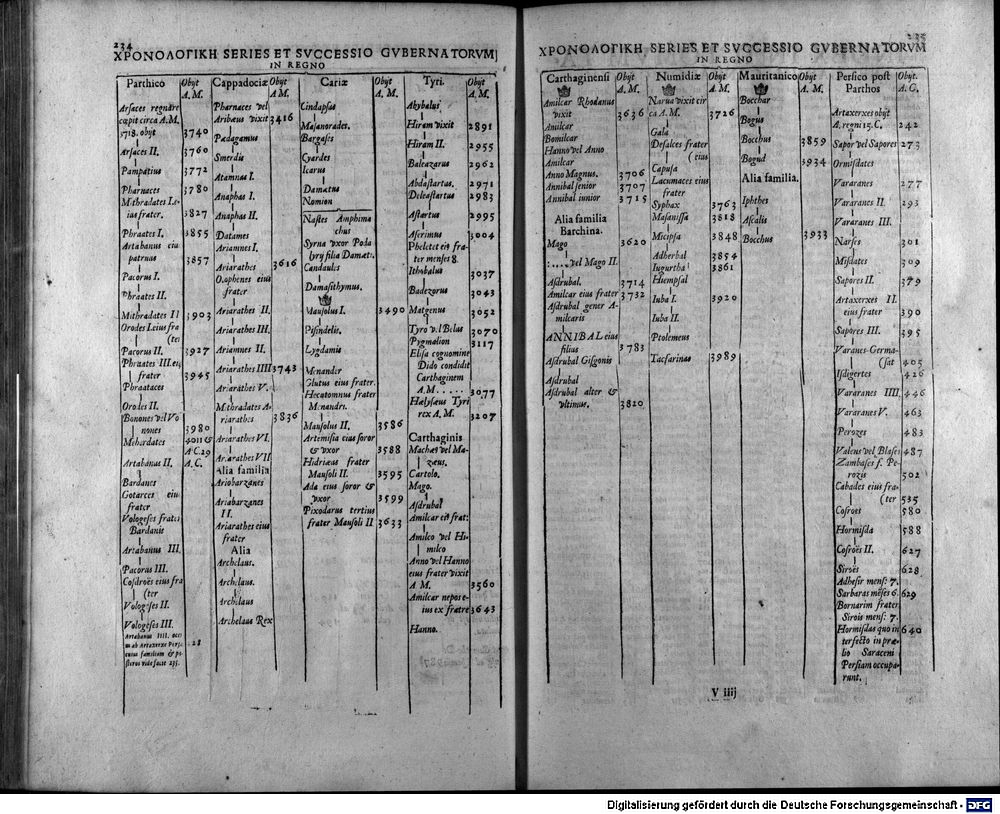 234
ΧΡΟΝΟΛΟΓΙΚΗ SERIES ET SVCCESSIO GVBERNATORVM
IN REGNO
Parthico Obijt A. M.
Arsaces regnare
cœpit circa A.M.
3718. obijt 3740
Arsaces II. 3760
Pampatius 3772
Pharnaces 3780
Mithradates Le-
ius frater. 3827
Phraates I. 3855
Artabanus eiu
patruus 3857
Pacorus I.
Phraates II.
Mithradates II 3903
Orodes Leius fra
(ter
Pacorus II. 3927
Phraates III. eiꝰ
frater 3945
Phraataces
Orodes II.
Bonones vel Vo
nones 3980
Meherdates 4011 &
A.C. 29
Artabanus II. A. C.
Bardanes
Gotarces eiu
frater
Vologeses frater
Bardanis
Artabanus III.
Pacorus III.
Cosdroës eius fra
(ter
Vologeses II.
Vologeses III.
Artabanus IIII. occi
Cappadociæ Obijt A. M.
Pharnaces vel
Aribæus vixit 3416
Padagamus
Smerdis
Atamnas I.
Anaphas I.
Anaphas II.
Datames
Ariamnes I.
Ariarathes 3616
Orophenes eius
frater
Ariarathes II.
Ariarathes III.
Ariamnes II.
Ariarathes IIII 3743
Ariarathes V.
Mithradates A-
riarathes 3836
Ariarathes VI.
Ariarathes VII
Alia familia
Ariobarzanes
Ariobarzanes
II.
Ariarathes eius
frater
Alia
Archelaus.
Archelaus.
Archelaus
Archelaus Rex
Cariæ Obijt A. M.
Cindapsus
Maianorades.
Bargases
Cyardes
Icarus
Damætus
Nomion
Nastes Amphima
chus
Syrna vxor Poda
lyrij filia Damæt:
Candaules
Damasithymus.
Mausolus I. 3490
Pisindelis.
Lygdamis
Menander
Glutus eius frater.
Hecatomnus frater
Menandri.
Mausolus II. 3586
Artemisia eius soror
& vxor 3588
Hidriæus frater
Mausoli II. 3595
Ada eius soror &
vxor 3599
Pixodarus tertius
frater Mausoli II 3633
Tyri. Obijt A. M.
Abybalus
Hiram vixit 2891
Hiram II. 2955
Baleazarus 2962
Abdastartus. 2971
Deleastartus 2983
Astartus 2995
Aserimus 3004
Pheletet eiꝰ fra-
ter menses 8.
Ithobalus 3037
Badezorus 3043
Matgenus 3052
Tyro vel Belus 3070
Pygmalion 3117
Elisa cognomine
Dido condidit
Carthaginem
A.M. . . . . 3077
Hælysæus Tyri
rex A. M. 3207
Carthaginis
Machæs vel Ma-
zæus.
Cartolo.
Mago.
Asdrubal
Amilcar eiꝰ frat:
Amilco vel Hi-
milco
Anno vel Hanno
eius frater vixit
A. M. 3560
Amilcar nepos e-
ius ex fratre 3643
Hanno.
ΧΡΟΝΟΛΟΓΙΚΗ SERIES ET SVCCESSIO GVBERNATORVM
IN REGNO
Carthaginensi Obijt A. M.
Amilcar Rhodanus
vixit 3636
Amilcar
Bomilcar
Hanno vel Anno
Amilcar
Anno Magnus. 3706
Annibal senior 3707
Annibal iunior 3715
Alia familia
Barchina.
Mago 3620
:.... vel Mago II.
Asdrubal. 3714
Amilcar eius frater 3732
Asdrubal gener A-
milcaris
ANNIBAL eius
filius 3783
Asdrubal Gisgonis
Asdrubal
Asdrubal alter &
vltimus. 3820
Numidiæ Obijt A. M.
Narua vixit cir
ca A. M. 3726
Gala
Desalces frater
(eius
Capusa
Lacumaces eius
frater
Syphax 3763
Masanissa 3818
Micipsa 3848
Adherbal 3854
Iugurtha 3861
Hiempsal
Iuba I. 3920
Iuba II.
Ptolemeus
Tacfarinas 3989
Mauritanico Obijt A. M.
Bocchar
Bogus
Bocchus 3859
Bogud 3934
Alia familia.
Iphthes
Ascalis
Bocchus 3933
Persico post
Parthos Obijt. A. C.
Artaxerxes obijt
A. regni 15. C. 242
Sapor vel Sapores 273
Ormisdates
Vararanes 277
Vararanes II. 293
Vararanes III.
Narses 301
Misdates 309
Sapores II. 379
Artaxerxes II.
eius frater 390
Sapores III. 395
Varanes-Germa-
(sat 405
Isdigertes 426
Vararanes IIII. 446
Vararanes V. 463
Perozes 483
Valens vel Blases 487
Zambases f. Pe-
rozis 502
Cabades eius fra-
(ter 535
Cosroes 580
Hormisda 588
Cosroës II. 627
Siroes 628
Adhesir mens: 7.
Sarbaras mẽses 6. 629
Bornarim frater
Sirois mens: 7.
Hormisdas quo in 640
terfecto in prœ-
lio Saraceni
Persiam occupa-
runt.
V iiij
Digitalisierung gefördert durch die Deutsche Forschungsgemeinschaft - DFG